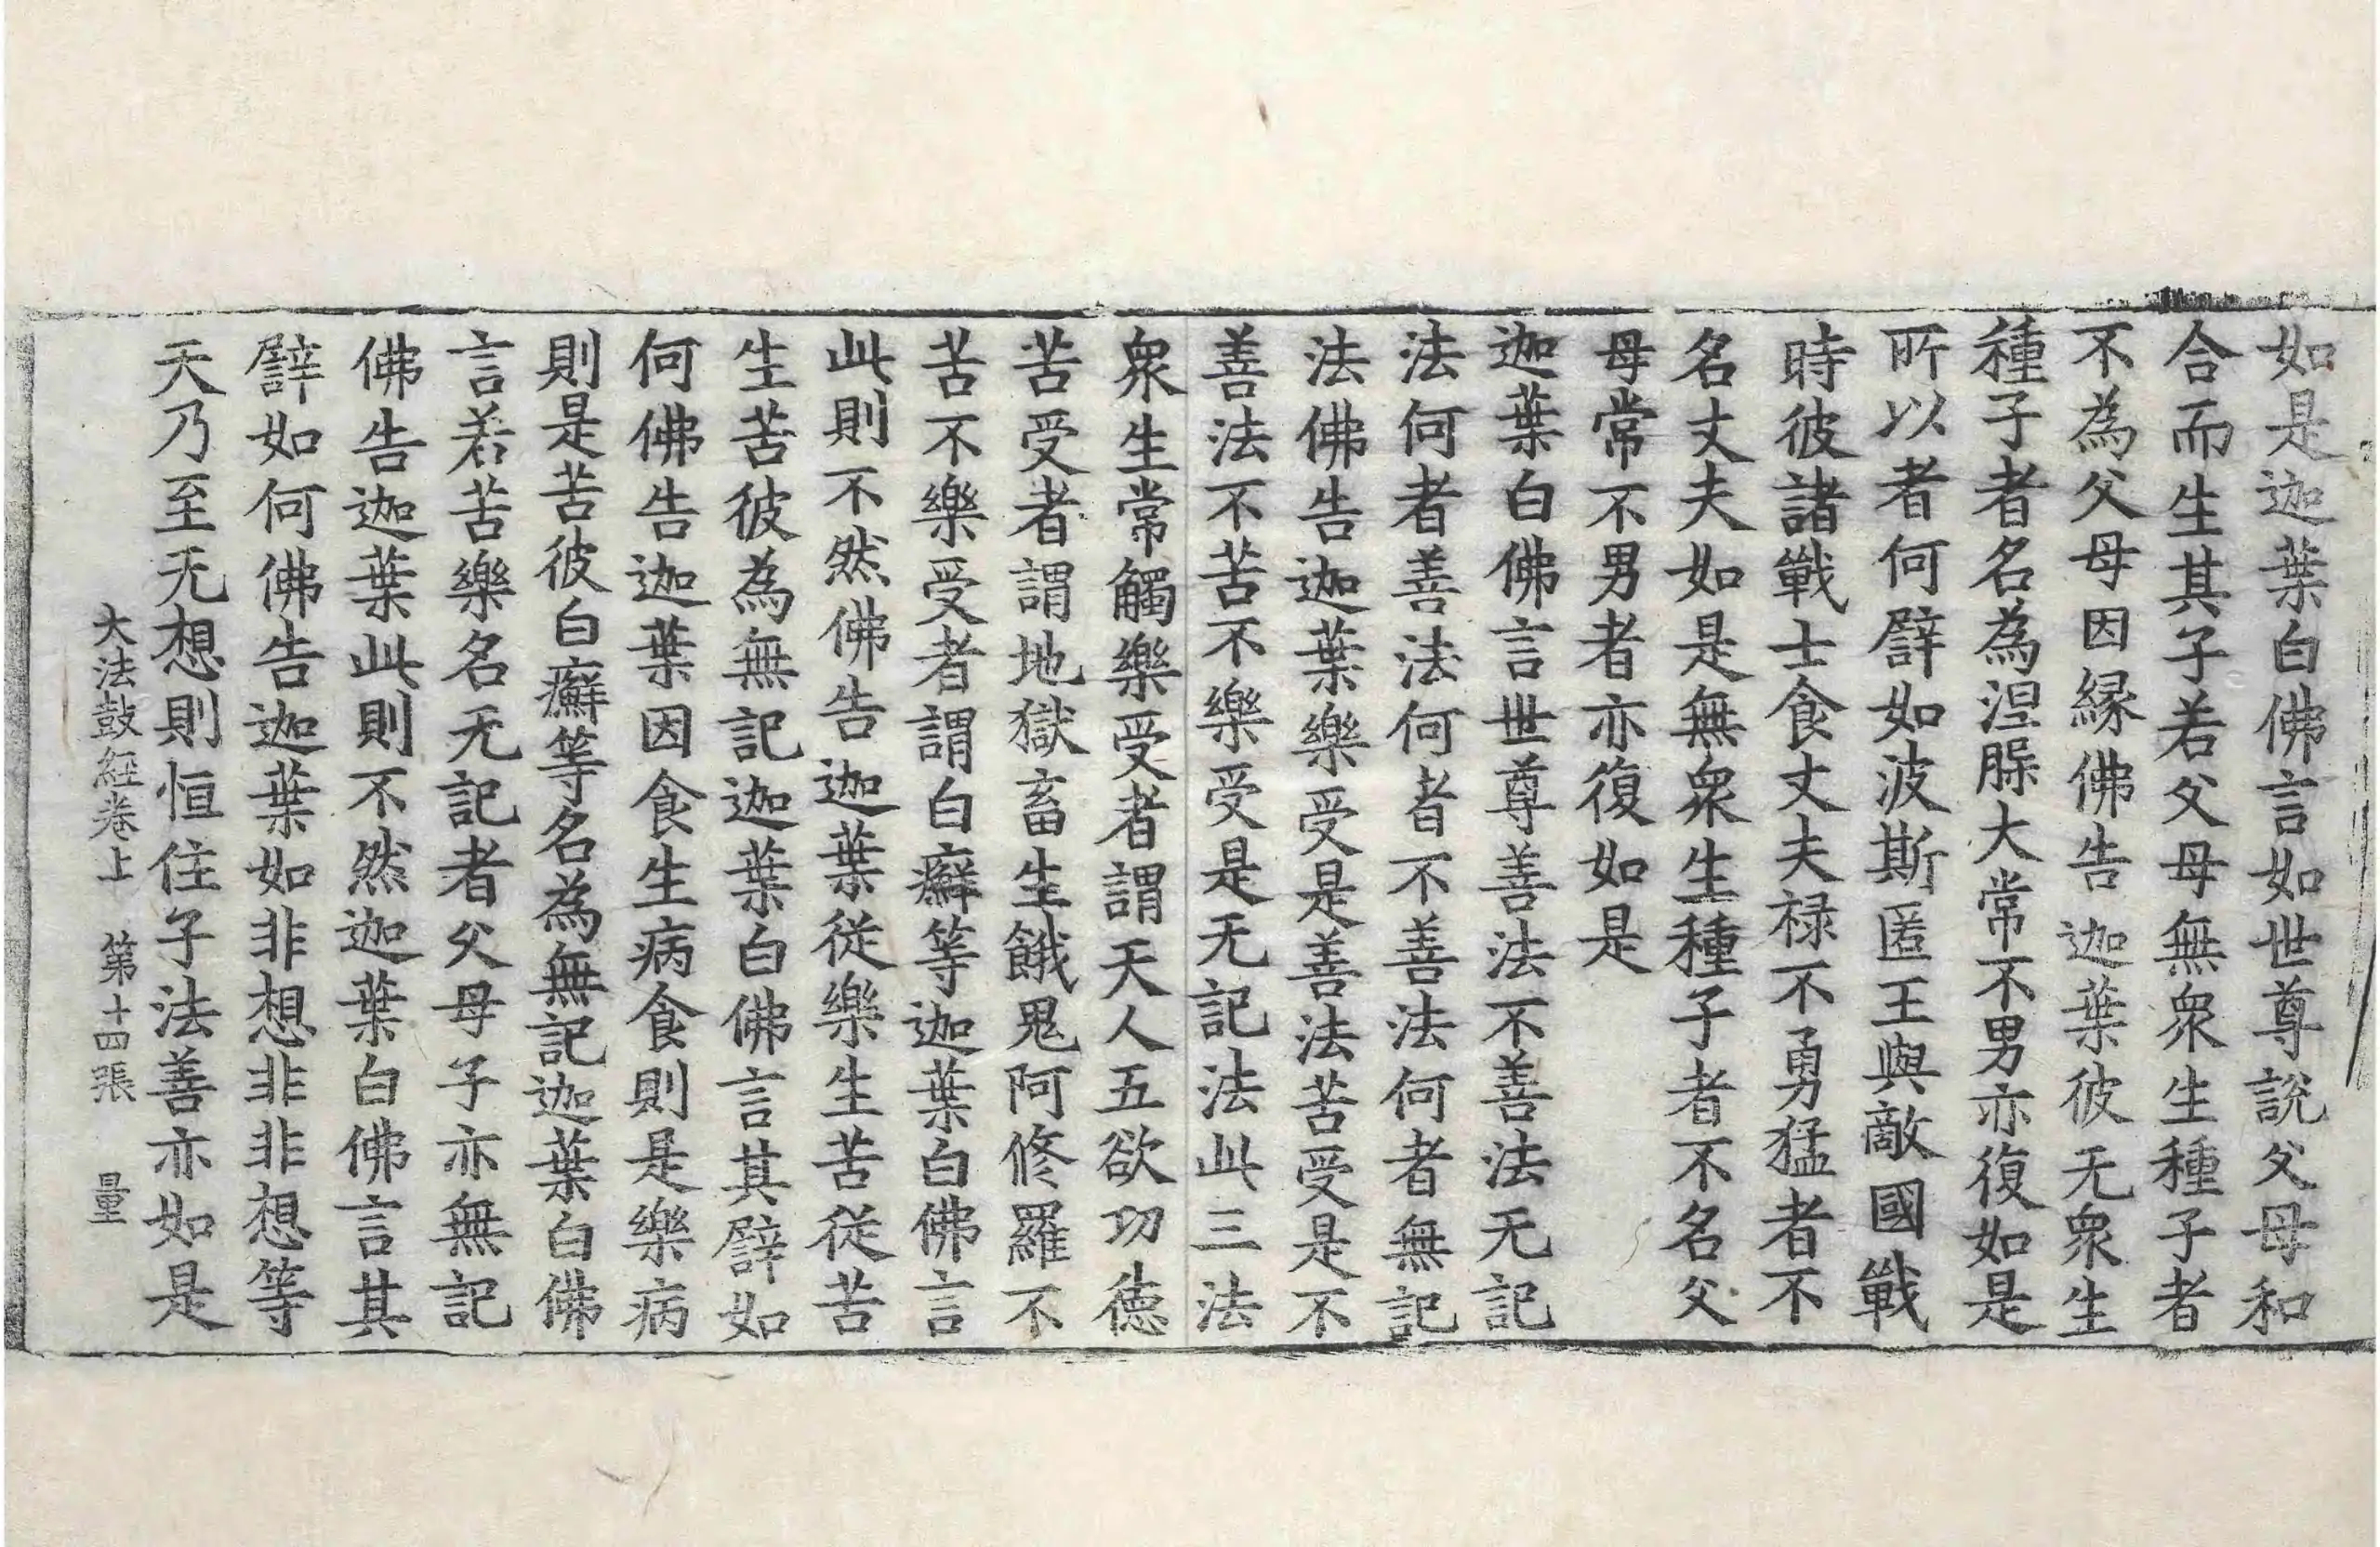 如是迦葉白佛言如世尊說父母和
合而生其子若父母無衆生種子者
不為父母因縁佛告迦葉彼无衆生
種子者名為涅槃大常不男亦復如是
所以者何譬如波斯匿王與敵國戰
時彼諸戰士食丈夫禄不勇猛者不
名丈夫如是無衆生種子者不名父
母常不男者亦復如是
迦葉白佛言世尊善法不善法无記
法何者善法何者不善法何者無記
法佛告迦葉樂受是善法苦受是不
善法不苦不樂受是无記法此三法
衆生常觸樂受者謂天人五欲功徳
苦受者謂地獄畜生餓鬼阿修羅不
苦不樂受者謂白癬等迦葉白佛言
此則不然佛告迦葉從樂生苦從苦
生苦彼為無記迦葉白佛言其譬如
何佛告迦葉因食生病食則是樂病
則是苦彼白癬等名為無記迦葉白佛
言若苦樂名无記者父母子亦無記
佛告迦葉此則不然迦葉白佛言其
譬如何佛告迦葉如非想非非想等
天乃至无想則恒住子法善亦如是
大法鼓經卷上 第十四張 量